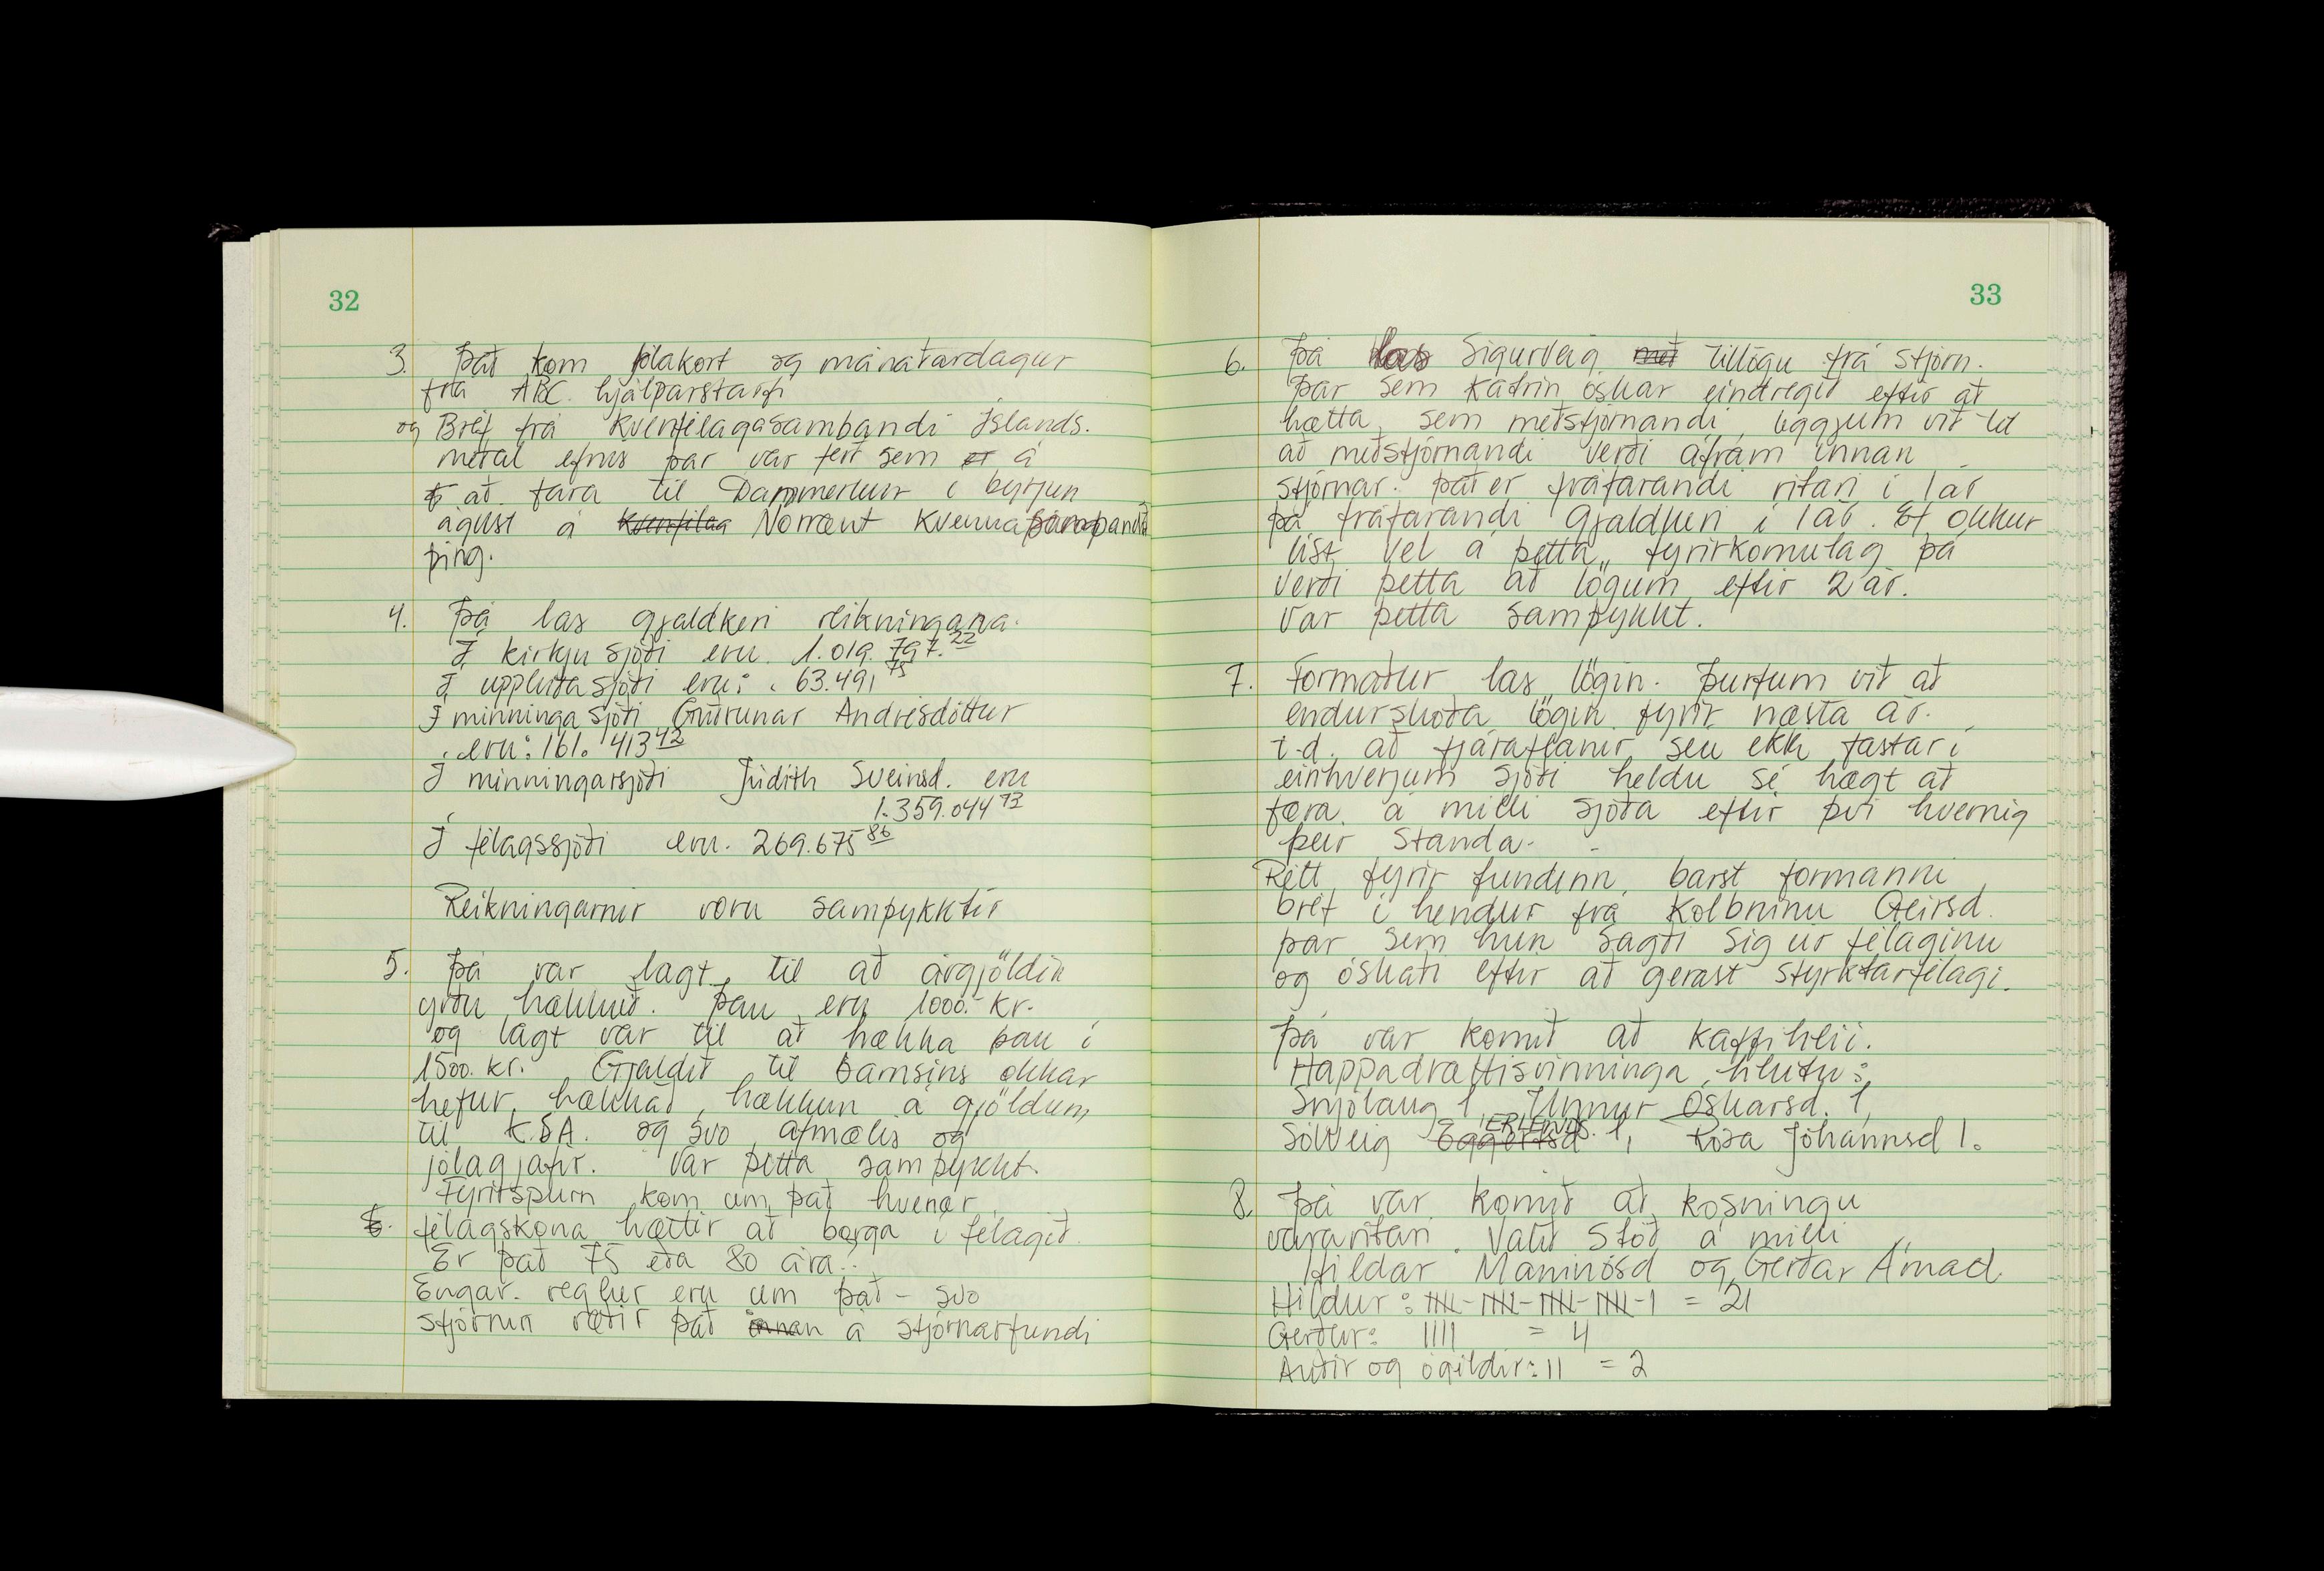 32
3. Það kom jólakort og mánaðardagur
frá ABC hjálparstarfi
og Bréf frá Kvenfélagasambandi Íslands.
meðal efnis þar var ferð sem er á
að fara til Danmerkur í byrjun
ágúst á Kvenfélag Norrænt Kvennasambands
þing.
4. Þá las gjaldkeri reikningana.
Í kirkju sjóði eru 1.019.797.22
Í upphita sjóði eru: 63.491 75
Í minninga sjóði Guðrúnar Andrésdóttur
eru: 161.413 42
Í minningarsjóði Júdith Sveinsd. eru
1.359.044 73
Í félagssjóði eru. 269.675 86
Reikningarnir voru samþykktir
5. Þá var lagt til að árgjöldin
yrðu hækkuð. Þau eru 1000.- kr.
og lagt var til að hækka þau í
1500. kr. Gjaldið til barnsins okkar
hefur hækkað, hækkun á gjöldum
til K.S.A. og svo afmælis og
jólagjafir. Var þetta samþykkt.
Fyrirspurn kom um það hvenær
6. félagskona hættir að borga í félagið.
Er það 75 eða 80 ára?.
Engar reglur eru um það - svo
stjórnin ræðir það innan á stjórnarfundi
33
6. Þá las Sigurveig með tillögu frá stjórn.
Þar sem Katrín óskar eindregið eftir að
hætta sem meðstjórnandi, leggjum við til
að meðstjórnandi verði áfram innan
stjórnar. Það er fráfarandi ritari í 1 ár
þá fráfarandi gjaldkeri í 1 ár. Ef okkur
líst vel á þetta fyrirkomulag þá
verði þetta að lögum eftir 2 ár.
Var þetta samþykkt.
7. Formaður las lögin. Þurfum við að
endurskoða lögin fyrir næsta ár.
t.d. að fjáraflanir séu ekki fastar í
einhverjum sjóði heldu sé hægt að
færa á milli sjóða eftir því hvernig
þeir standa.
Rétt fyrir fundinn barst formanni
bréf í hendur frá Kolbrúnu Geirsd.
þar sem hún sagði sig úr félaginu
og óskaði eftir að gerast styrktarfélagi.
Þá var komið að kaffihléi.
Happadrættisvinninga hlutu:
Snjólaug 1, Unnur Óskarsd. 1,
ERLENDS.
Sólveig Eggertsd 1, Rósa Jóhannsd 1.
8. Þá var komið að kosningu
vararitari. Valið stóð á milli
Hildar Magnúsd og Gerðar Árnad.
Hildur: |||| - |||| - |||| - |||| - 1 = 21
Gerður: |||| = 4
Auðir og ógildir: || = 2